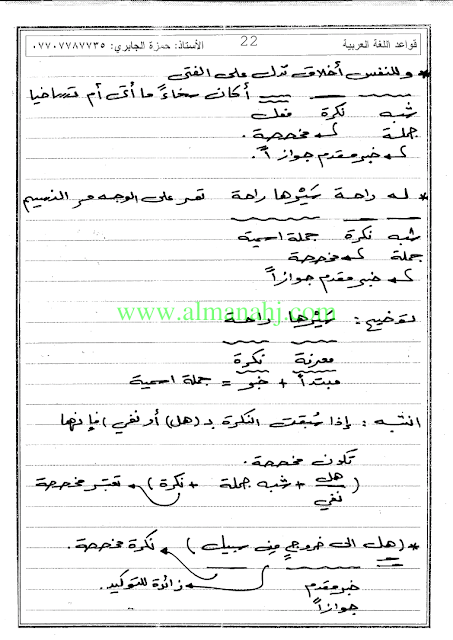 قواعد اللغة العربية
22
الأستاذ: حمزة الجابري: ٠٧٧٠٧٧٨٧٧٣٥
* وللنفس أخلاق تدل على الفتى
أكان سخاءً ما أتى أم تساخيا
شبه نكرة فعل
جملة مخصصة.
خبر مقدم جوازاً.
* له راحة سيرها راحة تمر على الوجه مر النسيم
شبه نكرة جملة اسمية
جملة مخصصة
خبر مقدم جوازاً
www.almanahj.com
توضيح: سيرها راحة
معرفة نكرة
مبتدأ + خبر = جملة اسمية
انتبه: إذا سُبقت النكرة بـ (هل) أو نفي) فإنها
تكون مخصصة.
(هل + شبه جملة + نكرة) تعتبر مخصصة
نفي
* (هل الى خروجٍ من سبيل) نكرة مخصصة.
خبر مقدم زائدة للتوكيد.
جوازاً